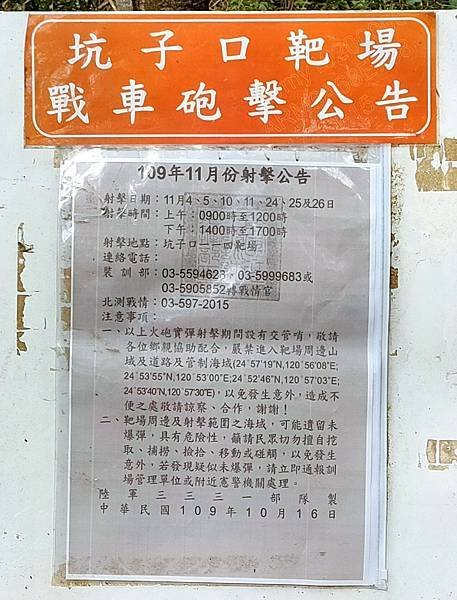 坑子口靶場
戰車砲擊公告
109年11月份射擊公告
射擊日期：11月4、5、10、11、24、25及26日
射擊時間：上午：0900時至1200時
下午：1400時至1700時
射擊地點：坑子口一一四靶場
連絡電話：
裝訓部：03-5594623、03-5999683或
03-5905852轉戰情官
北測戰情：03-597-2015
注意事項：
一、以上火砲實彈射擊期間設有交管哨，敬請
各位鄉親協助配合，嚴禁進入靶場周邊山
域及道路及管制海域(24°57'19"N,120°56'08"E;
24°53'55"N,120°53'00"E;24°52'46"N,120°57'03"E;
24°53'40"N,120°57'30"E)，以免發生意外，造成不
便之處敬請諒察、合作，謝謝！
二、靶場周邊及射擊範圍之海域，可能遺留未
爆彈，具有危險性，籲請民眾切勿擅自挖
取、捕撈、撿拾、移動或碰觸，以免發生
意外，若發現疑似未爆彈，請立即通報訓
場管理單位或附近憲警機關處理。
陸軍三三三一部隊製
中華民國109年10月16日